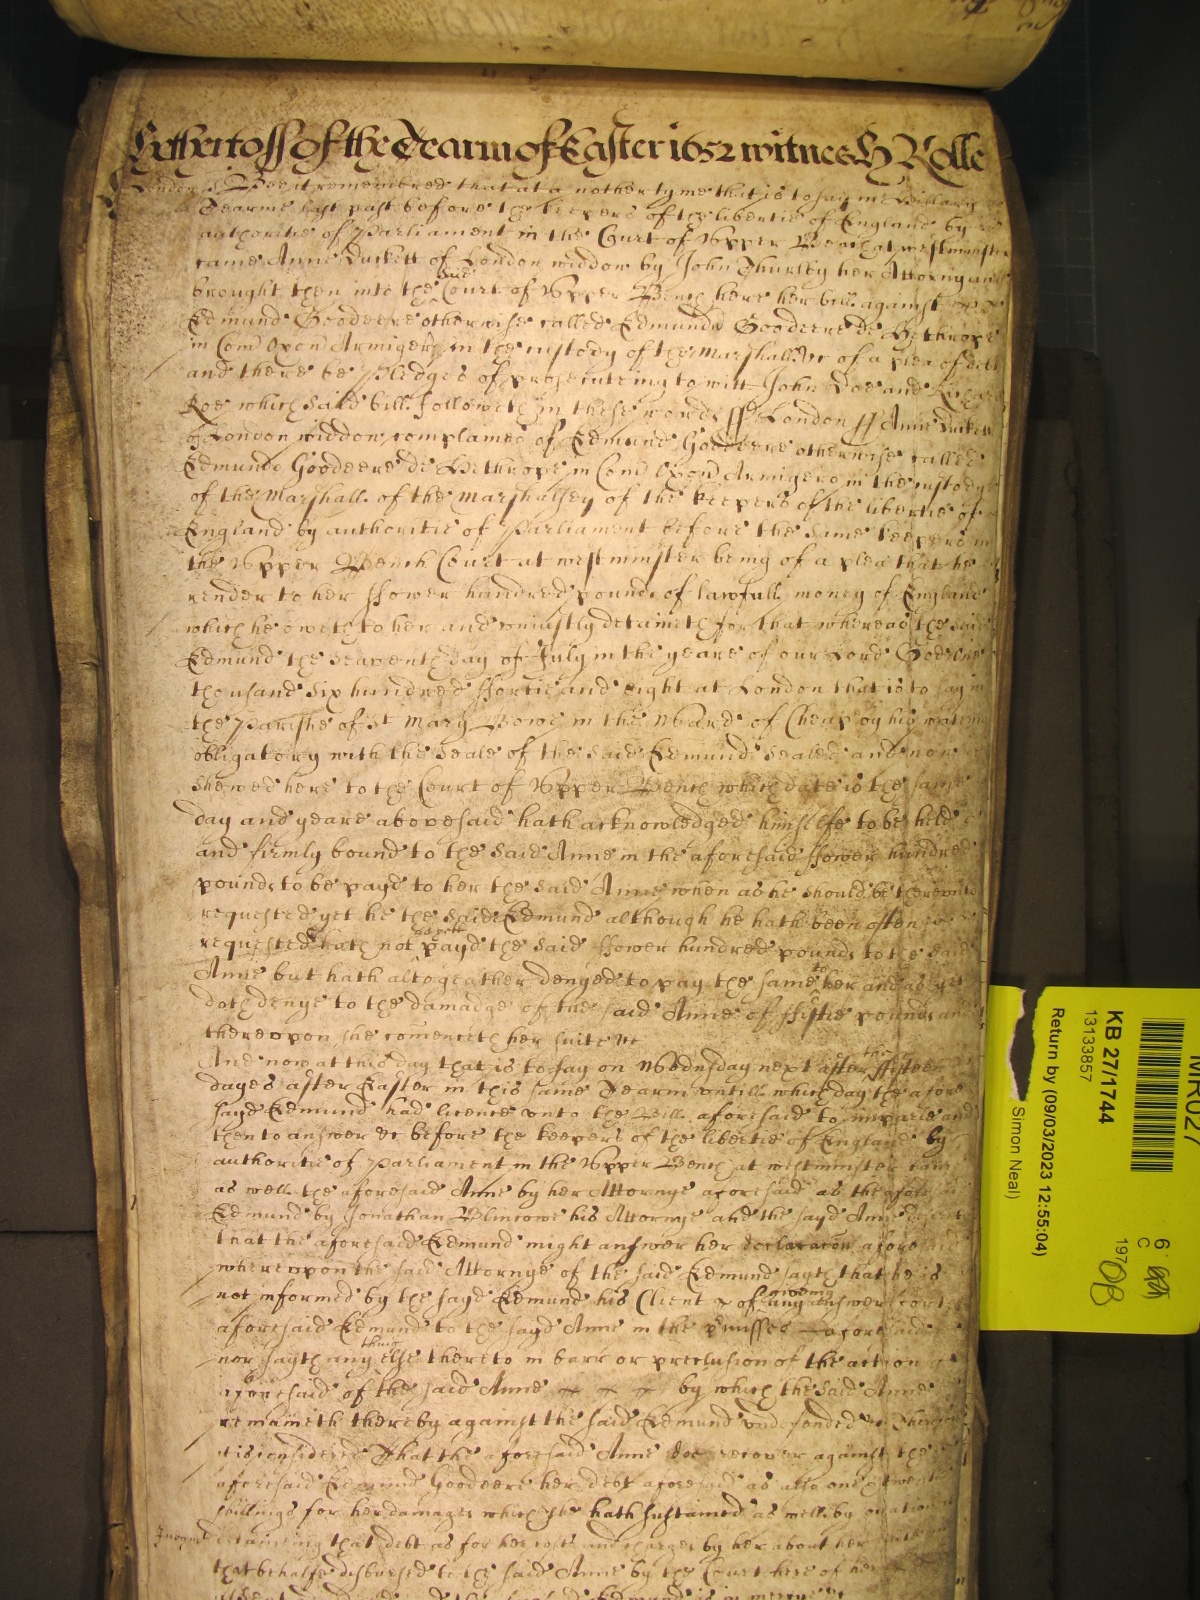 yet hertofs of the Tearm of Easter 1652 witnes H Rolle
London ss Bee it remembred that at a nother tyme that is to say in Hillary
Tearme last past before the keepers of the libertie of England by
authoritie of Parliament in the Court of Upper Bench at westminster
came Anne Duckett of London widdow by John Thursby her Attorny and
brought then into the said Court of Upper Bench here her bill against
Edmund Goodeere otherwise called Edmund Goodeere de Hethrope
in Com Oxon Armigero in the custody of the Marshall &c of a plea of debt
and there be Pledges of prosecuteing to witt John Doe and Richard
Roe which said bill followeth in these words ss London ss Anne Duckett
of London widdow complaines of Edmund Goodeere otherwise called
Edmund Goodeere de Hethrope in Com Oxon Armigero in the custody
of the Marshall of the Marshalsey of the keepers of the libertie of
England by authoritie of Parliament before the same keepers in
the Upper Bench Court at westminster being of a plea that he
render to her ffower hundred pounds of lawfull money of England
which he oweth to her and uniustly detaineth for that whereas the said
Edmund the Seaventh day of July in the yeare of our Lord God one
thousand six hundred ffortie and eight at London that is to say in
the Parishe of St Mary Bowe in the Ward of Cheap by his writeing
obligatory with the Seale of the said Edmund Sealed and now
shewed here to the Court of Upper Bench which date is the same
day and yeare abovesaid hath acknowledged himselfe to be held
and firmly bound to the said Anne in the aforesaid ffower hundred
pounds to be payd to her the said Anne when as he should be thereunto
requested yet he the said Edmund although he hath been often
requested hath not as yett payd the said ffower hundred pounds to the said
Anne but hath altogeather denyed to pay the same to her and as yet
doth denye to the damadge of the said Anne of ffiftie pounds and
thereupon she comenceth her suite &c
And now at this day that is to say on Wednsday next after the ffifteen
dayes after Easter in this same Tearm untill which day the afore
sayd Edmund had licence unto the Bill aforesaid to imparle and
then to answer &c before the keepers of the libertie of England by
authoritie of Parliament in the Upper Bench at westminster came
as well the aforesaid Anne by her Attornye aforesaid as the aforesaid
Edmund by Jonathan Blincowe his Attornye and the sayd Anne
that the aforesaid Edmund might answer her declaracon aforesaid
whereupon the said Attornye of the said Edmund sayth that he is
not informed by the sayd Edmund his Client of giveing any answer for the
aforesaid Edmund to the sayd Anne in the pmisses aforesaid
nor sayth any thing else thereto in barr or preclusion of the action
aforesaid of the said Anne by which the said Anne
remaineth thereby against the said Edmund undefended &c Therefore
it is considered That the aforesaid Anne doe recover against the
aforesaid Edmund Goodeere her debt aforesaid as also one & twenty
shillings for her damages which she hath sustained as well by
detaineing that debt as for her costs and charges by her about her
that behalfe disbursed to the said Anne by the Court here of her
Edmund is in mercy &c
KB 27/1744
13133857
Return by (09/03/2023 12:55:04)
Simon Neal)
MR027
6
C
197